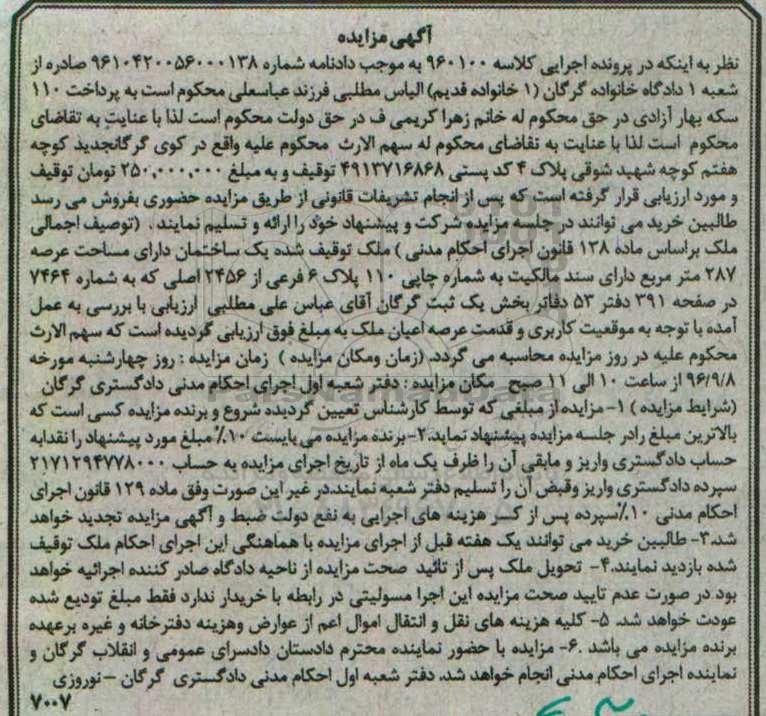 آگهی مزایده
نظر به اینکه در پرونده اجرایی کلاسه ۹۶۰۱۰۰ به موجب دادنامه شماره ۹۶۱۰۴۲۰۰۵۶۰۰۰۱۳۸ صادره از
شعبه ۱ دادگاه خانواده گرگان (۱ خانواده قدیم) الیاس مطلبی فرزند عباسعلی محکوم است به پرداخت ۱۱۰
سکه بهار آزادی در حق محکوم له خانم زهرا کریمی ف در حق دولت محکوم است لذا با عنایت به تقاضای
محکوم است لذا با عنایت به تقاضای محکوم له سهم الارث محکوم علیه واقع در کوی گرگانجدید کوچه
هفتم کوچه شهید شوقی پلاک ۴ کد پستی ۴۹۱۳۷۱۶۸۶۸ توقیف و به مبلغ ۲۵۰,۰۰۰,۰۰۰ تومان توقیف
و مورد ارزیابی قرار گرفته است که پس از انجام تشریفات قانونی از طریق مزایده حضوری بفروش می رسد
طالبین خرید می توانند در جلسه مزایده شرکت و پیشنهاد خود را ارائه و تسلیم نمایند . (توصیف اجمالی
ملک براساس ماده ۱۳۸ قانون اجرای احکام مدنی ) ملک توقیف شده یک ساختمان دارای مساحت عرصه
۲۸۷ متر مربع دارای سند مالکیت به شماره چاپی ۱۱۰ پلاک ۶ فرعی از ۲۴۵۶ اصلی که به شماره ۷۴۶۴
در صفحه ۳۹۱ دفتر ۵۳ دفاتر بخش یک ثبت گرگان آقای عباس علی مطلبی ارزیابی با بررسی به عمل
آمده با توجه به موقعیت کاربری و قدمت عرصه اعیان ملک به مبلغ فوق ارزیابی گردیده است که سهم الارث
محکوم علیه در روز مزایده محاسبه می گردد. (زمان ومکان مزایده ) زمان مزایده : روز چهارشنبه مورخه
۹۶/۹/۸ از ساعت ۱۰ الی ۱۱ صبح مکان مزایده : دفتر شعبه اول اجرای احکام مدنی دادگستری گرگان
(شرایط مزایده ) ۱- مزایده از مبلغی که توسط کارشناس تعیین گردیده شروع و برنده مزایده کسی است که
بالاترین مبلغ رادر جلسه مزایده پیشنهاد نماید.۲- برنده مزایده می بایست ۱۰٪ مبلغ مورد پیشنهاد را نقدابه
حساب دادگستری واریز و مابقی آن را ظرف یک ماه از تاریخ اجرای مزایده به حساب ۲۱۷۱۲۹۴۷۷۸۰۰۰
سپرده دادگستری واریز وقبض آن را تسلیم دفتر شعبه نمایند.در غیر این صورت وفق ماده ۱۲۹ قانون اجرای
احکام مدنی ۱۰٪سپرده پس از کسر هزینه های اجرایی به نفع دولت ضبط و آگهی مزایده تجدید خواهد
شد.۳- طالبین خرید می توانند یک هفته قبل از اجرای مزایده با هماهنگی این اجرای احکام ملک توقیف
شده بازدید نمایند.۴- تحویل ملک پس از تائید صحت مزایده از ناحیه دادگاه صادر کننده اجرائیه خواهد
بود در صورت عدم تایید صحت مزایده این اجرا مسولیتی در رابطه با خریدار ندارد فقط مبلغ تودیع شده
عودت خواهد شد. ۵- کلیه هزینه های نقل و انتقال اموال اعم از عوارض وهزینه دفترخانه و غیره برعهده
برنده مزایده می باشد .۶- مزایده با حضور نماینده محترم دادستان دادسرای عمومی و انقلاب گرگان و
نماینده اجرای احکام مدنی انجام خواهد شد. دفتر شعبه اول احکام مدنی دادگستری گرگان – نوروزی
۷۰۰۷